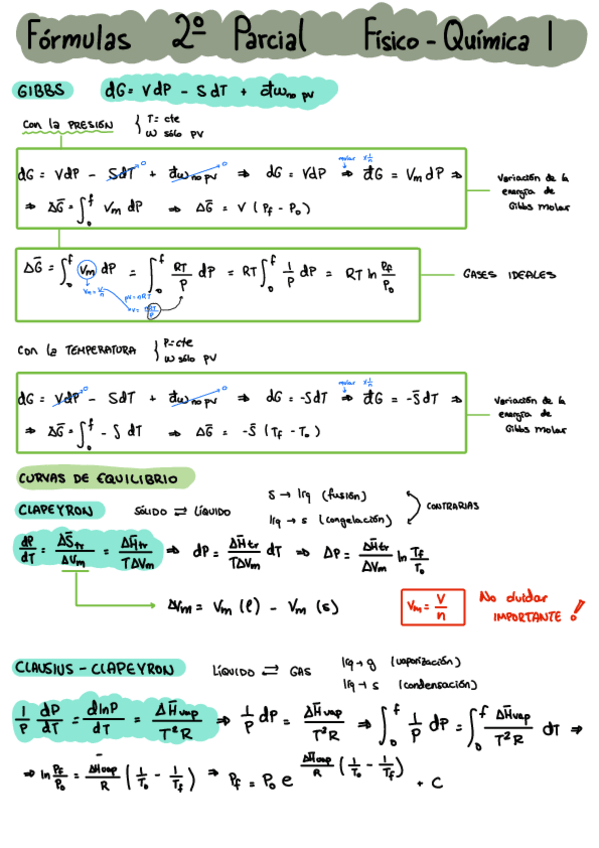 Fórmulas 2º Parcial Físico - Química I
GIBBS dG = VdP - SdT + đw no pv
Con la PRESIÓN { T = cte
W sólo PV
dG = VdP - SdT→0 + đw no pv→0 ⇒ dG = VdP ⇒ (molar x 1/n) dḠ = Vm dP ⇒
⇒ ΔḠ = ∫₀^f Vm dP ⇒ ΔḠ = V (Pf - P₀)
Variación de la
energía de
Gibbs molar
ΔḠ = ∫₀^f Vm dP = ∫₀^f RT/P dP = RT ∫₀^f 1/P dP = RT ln Pf/P₀
Vm = V/n
PV = nRT
V = nRT/P
GASES IDEALES
Con la TEMPERATURA { P = cte
W sólo PV
dG = VdP→0 - SdT + đw no pv→0 ⇒ dG = -SdT ⇒ (molar x 1/n) dḠ = -S̄dT ⇒
⇒ ΔḠ = ∫₀^f - S dT ⇒ ΔḠ = -S̄ (Tf - T₀)
Variación de la
energía de
Gibbs molar
CURVAS DE EQUILIBRIO
CLAPEYRON SÓLIDO ⇌ LÍQUIDO
s → líq (fusión)
líq → s (congelación)
CONTRARIAS
dP/dT = ΔS̄tr/ΔVm = ΔH̄tr/TΔVm ⇒ dP = ΔH̄tr/TΔVm dT ⇒ ΔP = ΔH̄tr/ΔVm ln Tf/T₀
ΔVm = Vm (l) - Vm (s)
Vm = V/n
No olvidar
IMPORTANTE!
CLAUSIUS - CLAPEYRON LÍQUIDO ⇌ GAS
líq → g (vaporización)
líq → s (condensación)
1/P dP/dT = dlnP/dT = ΔH̄vap/T²R ⇒ 1/P dP = ΔH̄vap/T²R ⇒ ∫₀^f 1/P dP = ∫₀^f ΔH̄vap/T²R dT ⇒
⇒ ln Pf/P₀ = ΔH̄vap/R (1/T₀ - 1/Tf) ⇒ Pf = P₀ e^(ΔH̄vap/R (1/T₀ - 1/Tf)) + C